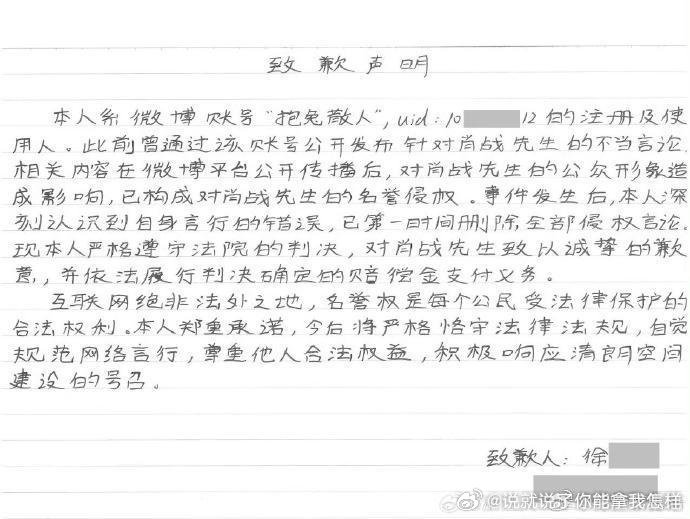 致歉声明
本人系微博账号“抱兔散人”,uid:10 12的注册及使
用人。此前曾通过该账号公开发布针对肖战先生的不当言论,
相关内容在微博平台公开传播后,对肖战先生的公众形象造
成影响,已构成对肖战先生的名誉侵权。事件发生后,本人深
刻认识到自身言行的错误,已第一时间删除全部侵权言论。
现本人严格遵守法院的判决,对肖战先生致以诚挚的歉
意,并依法履行判决确定的赔偿金支付义务。
互联网络非法外之地,名誉权是每个公民受法律保护的
合法权利。本人郑重承诺,今后将严格恪守法律法规,自觉
规范网络言行,尊重他人合法权益,积极响应清朗空间
建设的号召。
致歉人:徐
@说就说了你能拿我怎样